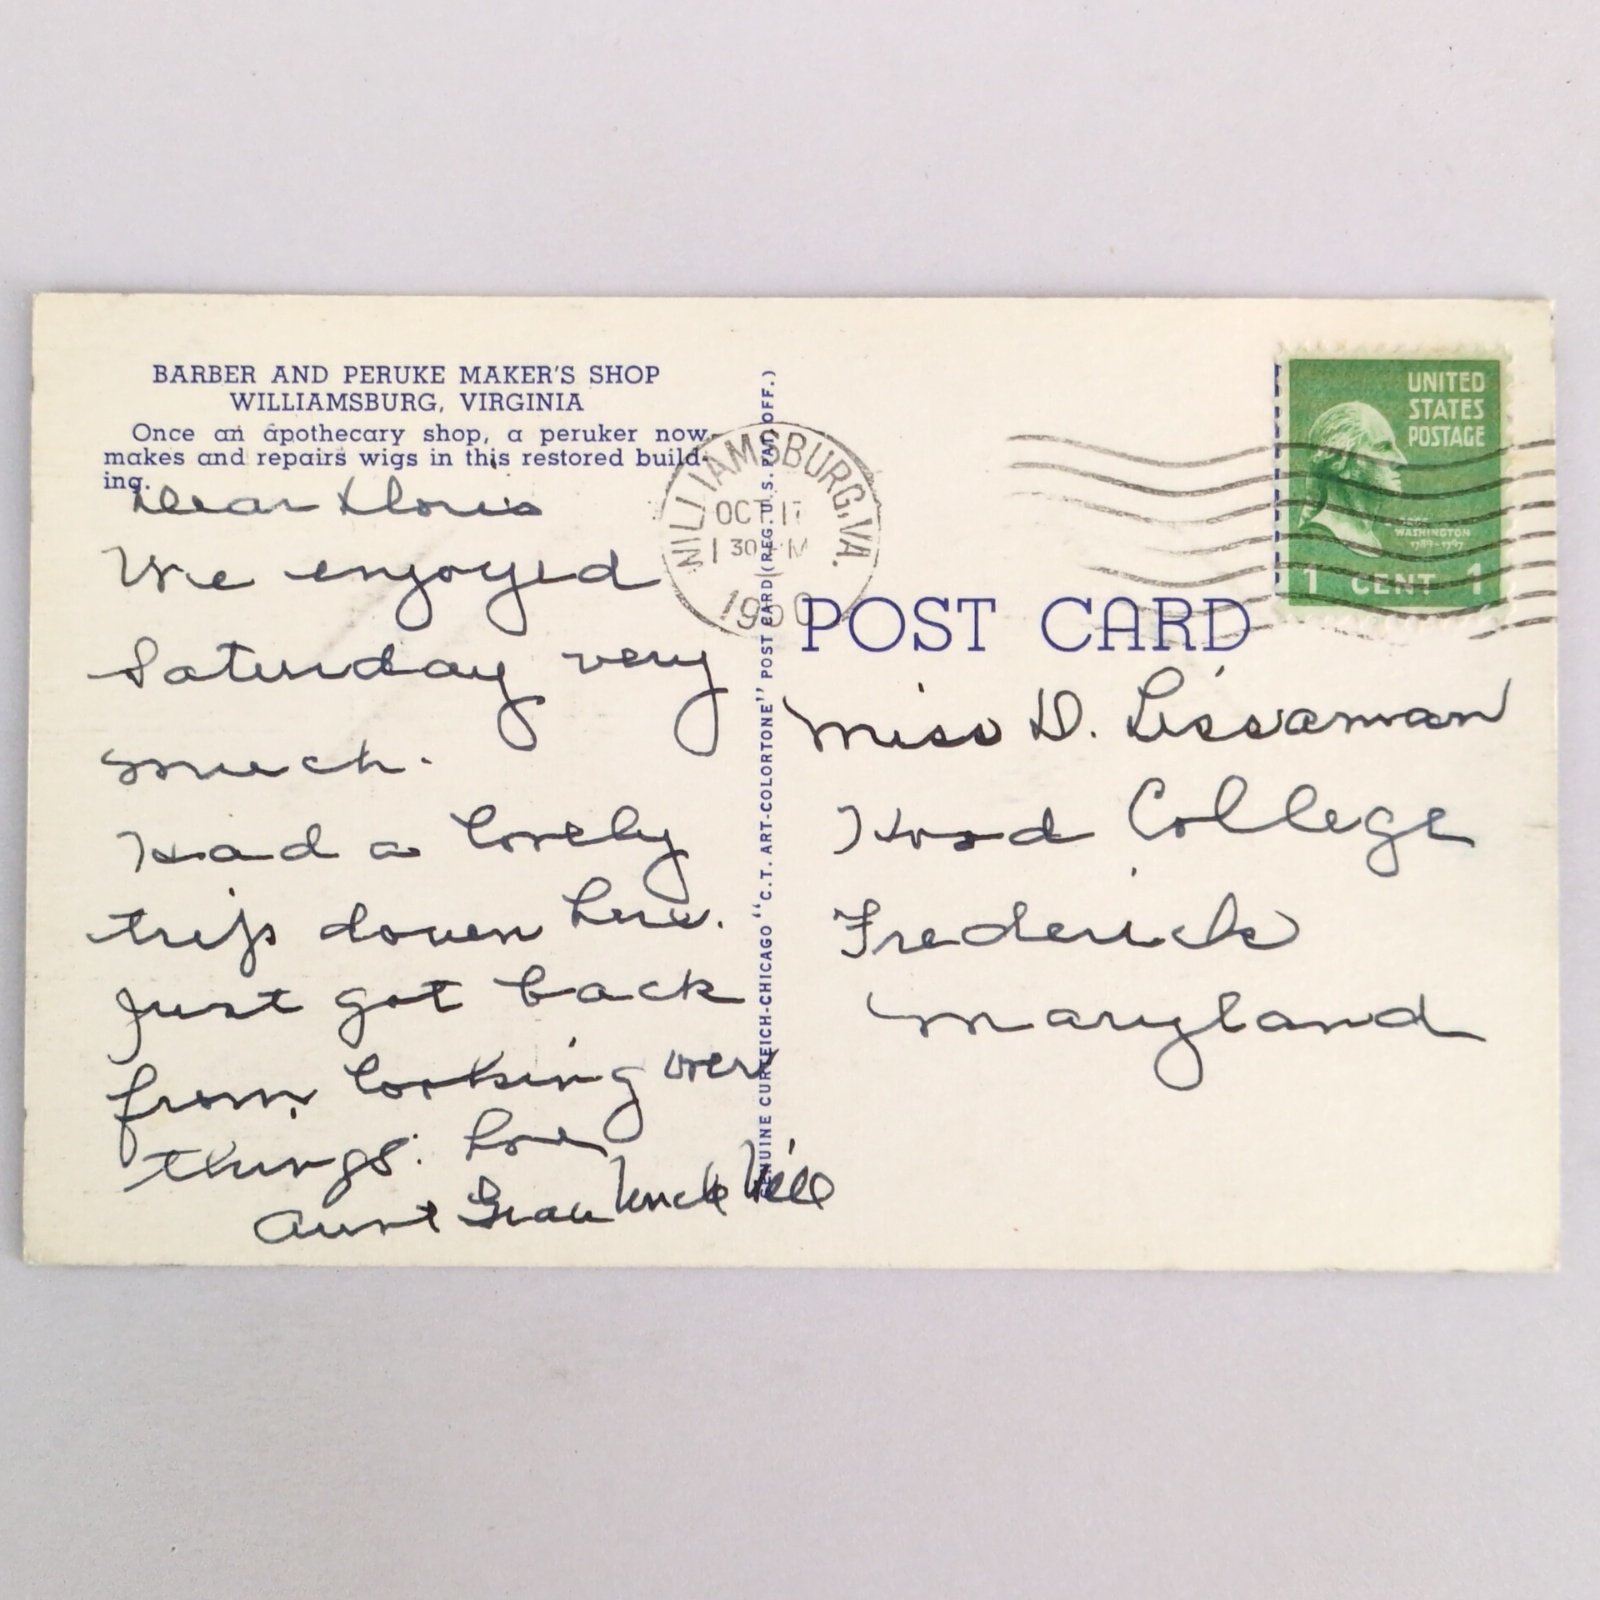 BARBER AND PERUKE MAKER'S SHOP
WILLIAMSBURG, VIRGINIA
Once an apothecary shop, a peruker now
makes and repairs wigs in this restored build-
ing.
Dear Doris
We enjoyed
Saturday very
much.
Had a lovely
trip down here.
Just got back
from looking over
things. Love
Aunt Uncle Will
GENUINE CURTEICH-CHICAGO "C.T. ART-COLORTONE" POST CARD (REG. U.S. PAT. OFF.)
WILLIAMSBURG, VA.
OCT 17
1 30 PM
1950
UNITED
STATES
POSTAGE
WASHINGTON
1789-1797
1 CENT 1
POST CARD
Miss D. Lissaman
Hood College
Frederick
Maryland